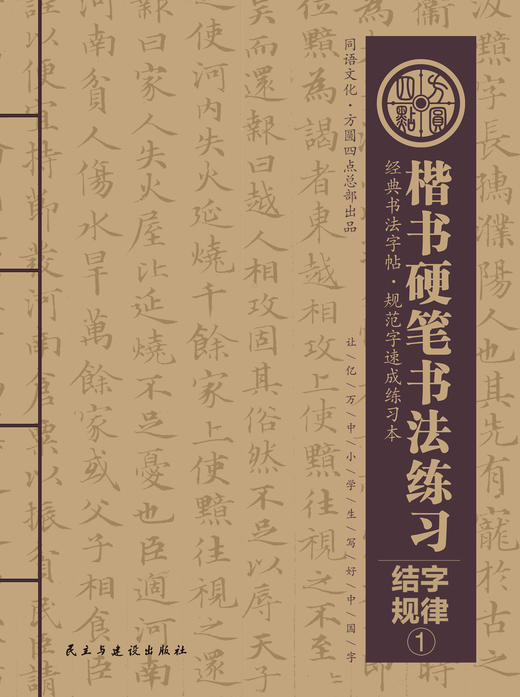 方圓四點
楷书硬笔书法练习
经典书法字帖·规范字速成练习本
结字
规律
①
同语文化·方圆四点总部出品
让/亿/万/中/小/学/生/写/好/中/国/字
民主与建设出版社
汲黯字長孺濮陽人也其先有寵於古之
衛
位黯為謁者東越相攻上使黯往視之
吴而還報曰越人相攻固其俗然不足以辱天子
使河内失火延燒千餘家上使黯往視之
曰家人失火屋比延燒不足憂也臣過河南
河南貧人傷水旱萬餘家或父子相食臣
以便宜持節發河南倉粟以振貧民臣請